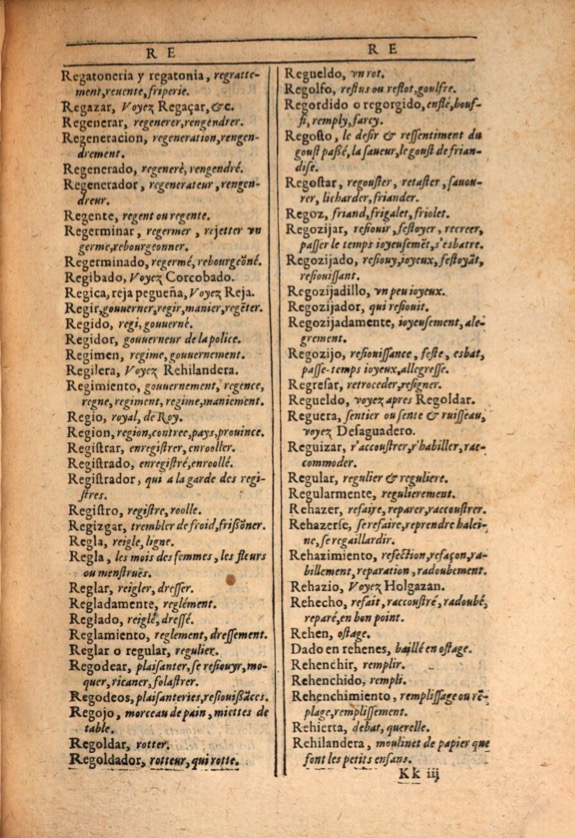 R E
Regatoneria y regatonia, regratte-
ment, reuente, friperie.
Regazar, Voyez Regaçar, &c.
Regenerar, regenerer, rengendrer.
Regeneracion, regeneration, rengen-
drement.
Regenerado, regeneré, rengendré.
Regenerador, regenerateur, rengen-
dreur.
Regente, regent ou regente.
Regerminar, regermer, rejetter vn
germe, rebourgeonner.
Regerminado, regermé, rebourgeōné.
Regibado, Voyez Corcobado.
Regica, reja pegueña, Voyez Reja.
Regir, gouuerner, regir, manier, regẽter.
Regido, regi, gouuerné.
Regidor, gouuerneur de la police.
Regimen, regime, gouuernement.
Regilera, Voyez Rehilandera.
Regimiento, gouuernement, regence,
regne, regiment, regime, maniement.
Regio, royal, de Roy.
Region, region, contree, pays, prouince.
Regiſtrar, enregiſtrer, enrooller.
Regiſtrado, enregiſtré, enroollé.
Regiſtrador, qui a la garde des regi-
ſtres.
Regiſtro, regiſtre, roolle.
Regizgar, trembler de froid, friſſōner.
Regla, reigle, ligne.
Regla, les mois des femmes, les fleurs
ou menſtruës.
Reglar, reigler, dreſſer.
Regladamente, reglément.
Reglado, reiglé, dreſſé.
Reglamiento, reglement, dreſſement.
Reglar o regular, regulier.
Regodear, plaiſanter, ſe reſiouyr, mo-
quer, ricaner, folaſtrer.
Regodeos, plaiſanteries, reſiouiſſāces.
Regojo, morceau de pain, miettes de
table.
Regoldar, rotter.
Regoldador, rotteur, qui rotte.
R E
Regueldo, vn rot.
Regolfo, reflus ou reflot, goulfre.
Regordido o regorgido, enflé, bouf-
fi, remply, farcy.
Regoſto, le deſir & reſſentiment du
gouſt paſſé, la ſaueur, le gouſt de frian-
diſe.
Regoſtar, regouſter, retaſter, ſauou-
rer, licharder, friander.
Regoz, friand, frigalet, friolet.
Regozijar, reſiouir, feſtoyer, recreer,
paſſer le temps ioyeuſemẽt, s'esbatre.
Regozijado, reſiouy, ioyeux, feſtoyāt,
reſiouiſſant.
Regozijadillo, vn peu ioyeux.
Regozijador, qui reſiouit.
Regozijadamente, ioyeuſement, ale-
grement.
Regozijo, reſiouiſſance, feſte, esbat,
paſſe-temps ioyeux, allegreſſe.
Regreſar, retroceder, reſigner.
Regueldo, voyez apres Regoldar.
Reguera, ſentier ou ſente & ruiſſeau,
voyez Deſaguadero.
Reguizar, r'accouſtrer, r'habiller, rac-
commoder.
Regular, regulier & reguliere.
Regularmente, regulierement.
Rehazer, refaire, reparer, raccouſtrer.
Rehazerſe, ſe refaire, reprendre halei-
ne, ſe regaillardir.
Rehazimiento, refection, refaçon, ra-
billement, reparation, radoubement.
Rehazio, Voyez Holgazan.
Rehecho, refait, raccouſtré, radoubé,
reparé, en bon point.
Rehen, oſtage.
Dado en rehenes, baillé en oſtage.
Rehenchir, remplir.
Rehenchido, rempli.
Rehenchimiento, rempliſſage ou rẽ-
plage, rempliſſement.
Rehierta, debat, querelle.
Rehilandera, moulinet de papier que
font les petits enfans.
Kk iij